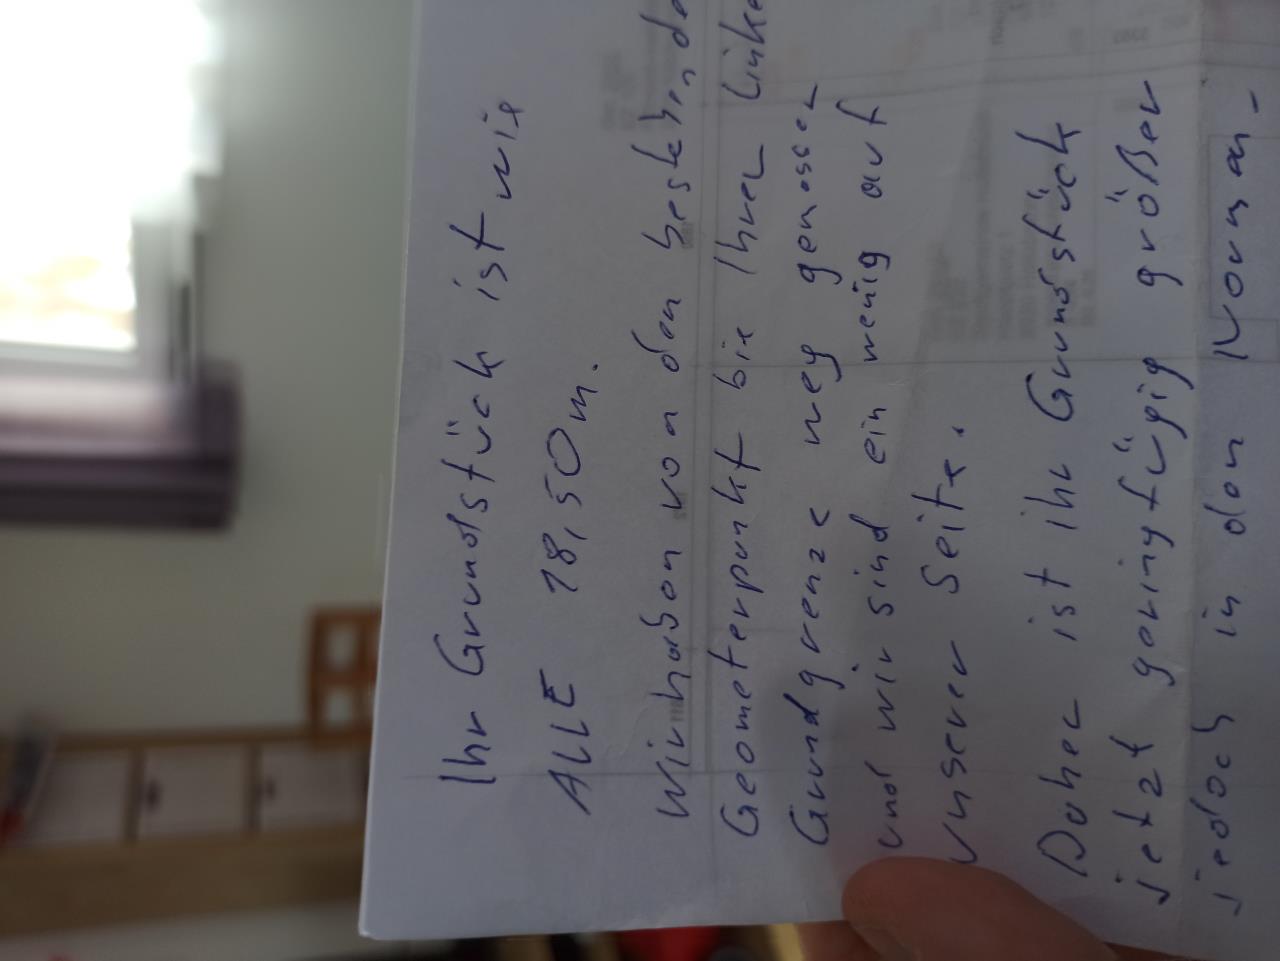 Ihr Grundstück ist wie
ALLE 18,50m.
Wir haben von den bestehende
Geometerpunkt bis Ihrer linke
Grundgrenze weg gemessen
und wir sind ein wenig auf
unserer Seite.
Daher ist ihr Grundstück
jetzt geringfügig größer
jedoch in den Norman-